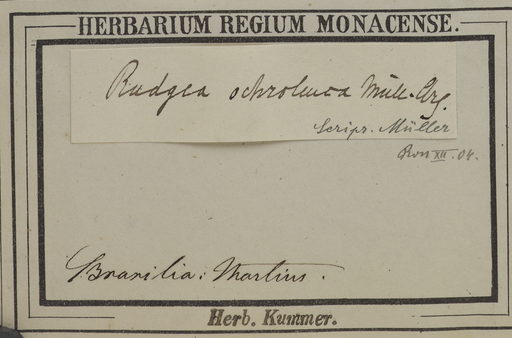 HERBARIUM REGIUM MONACENSE.
Rudgea ochroleuca Müll. Arg.
Scrips. Müller
Ross XII. 04.
Brasilia: Martius.
Herb. Kummer.